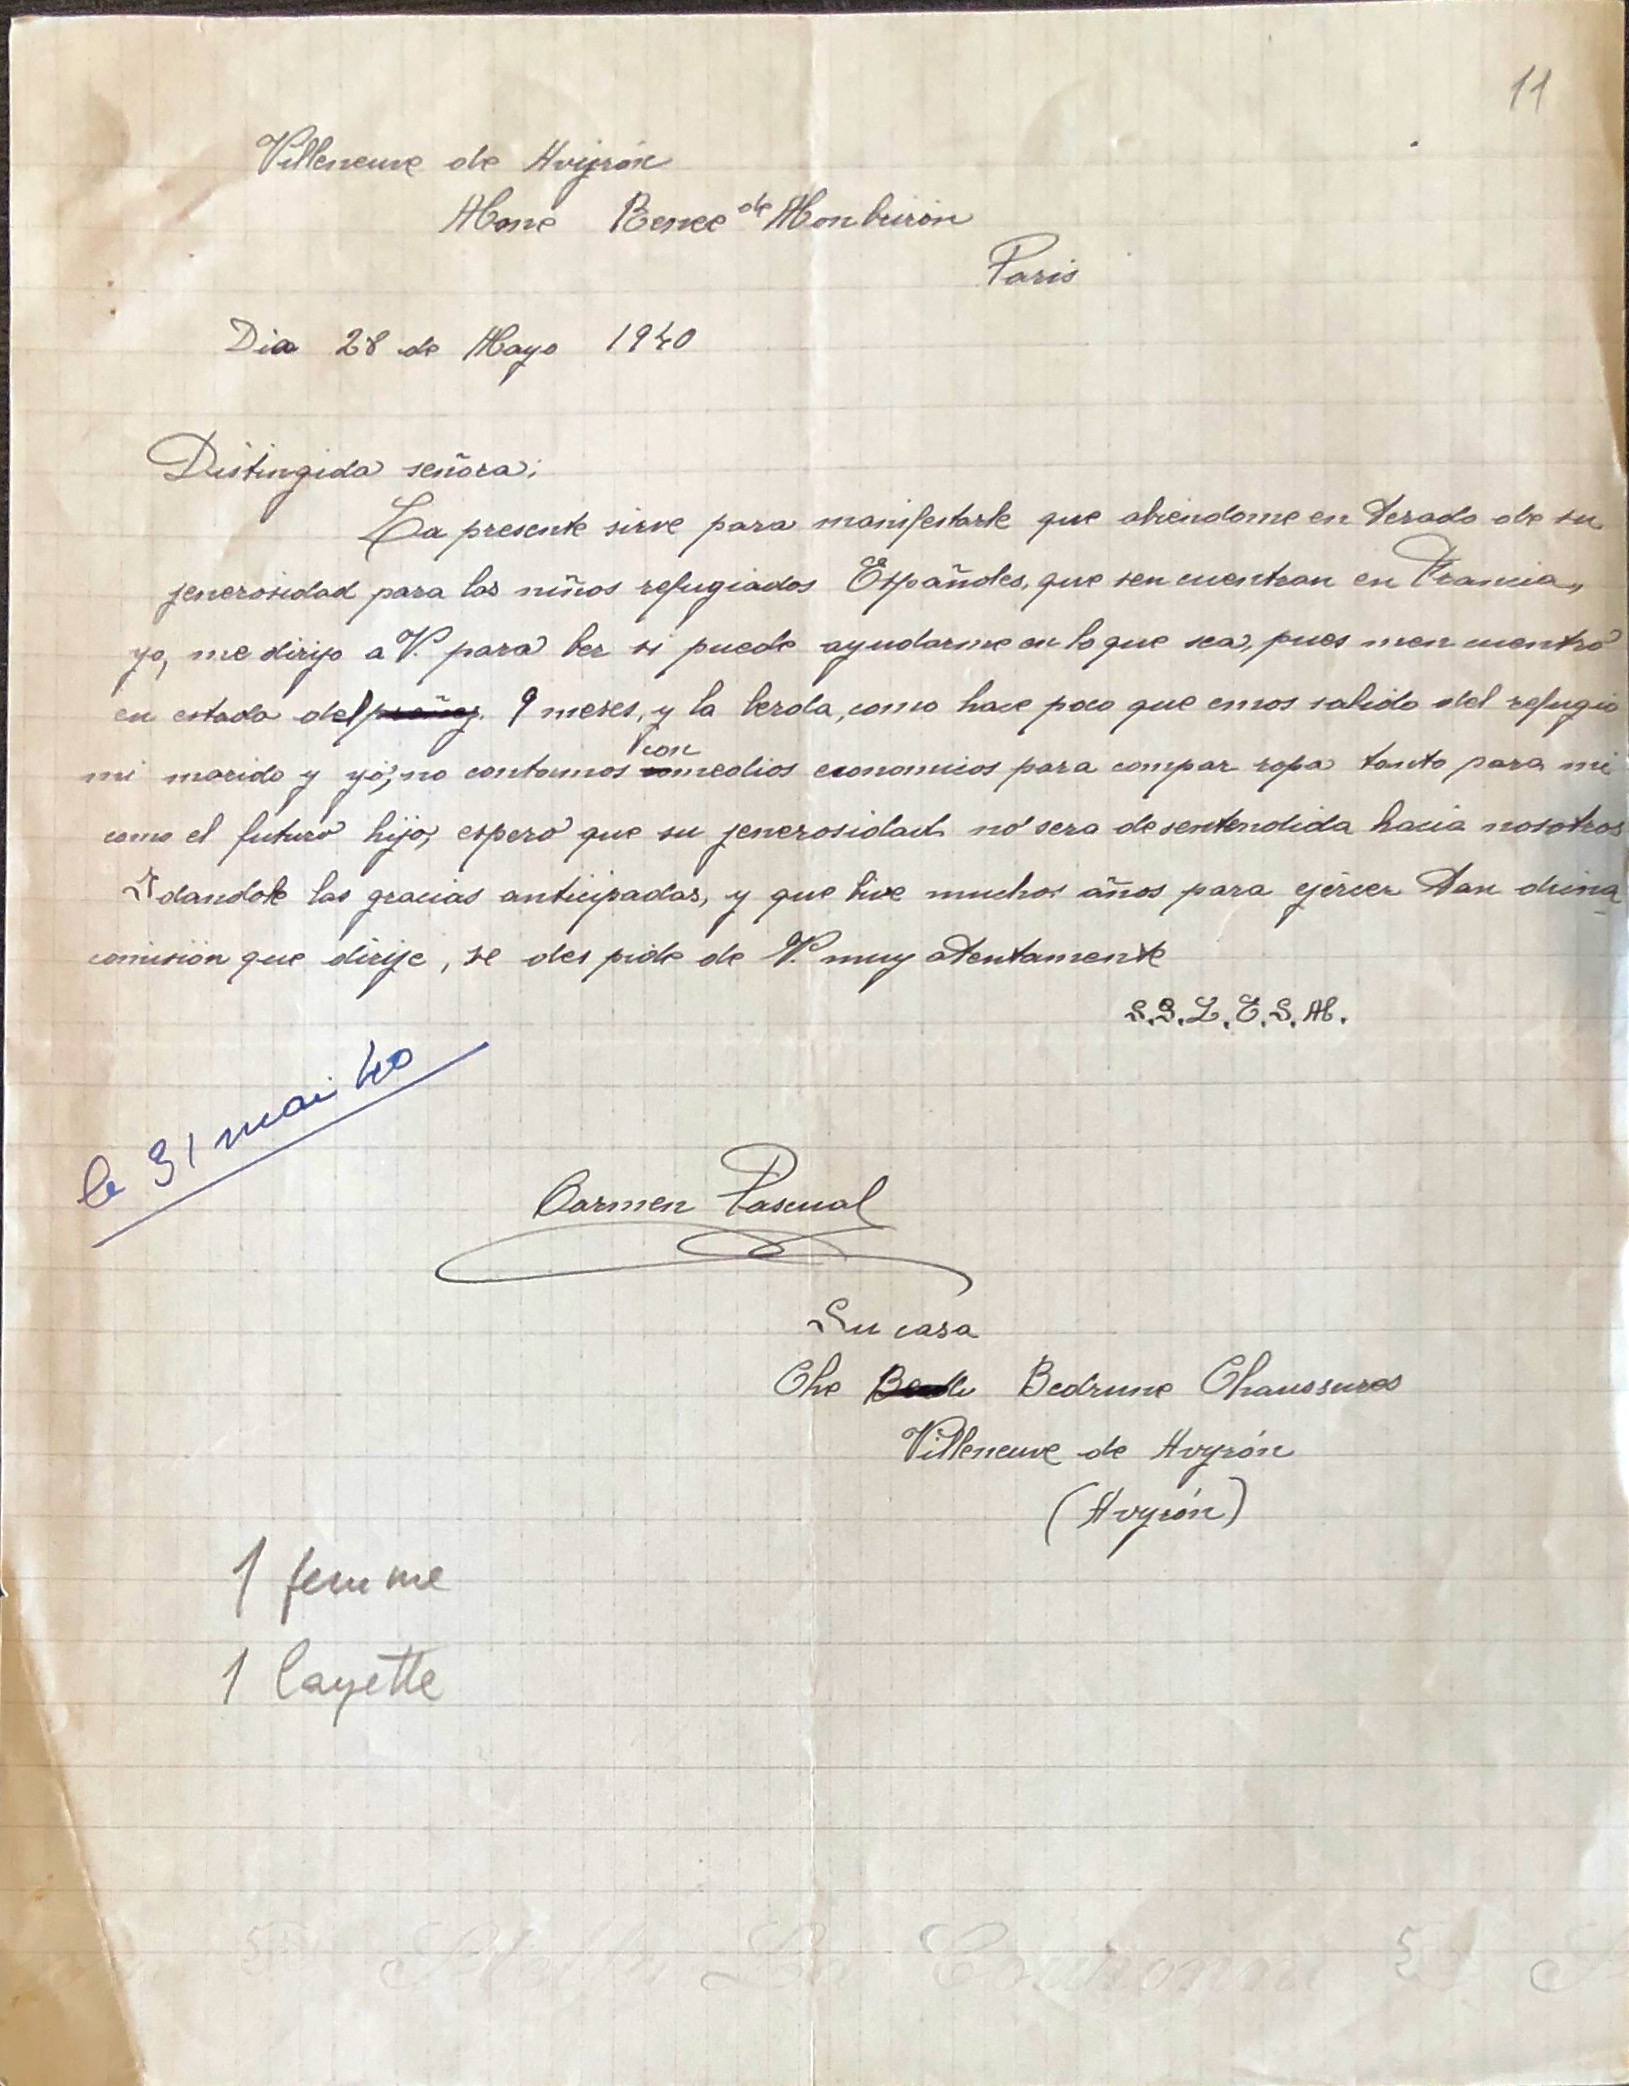 11
Villeneuve de Avyrón
Mone Renee de Monbrison
Paris
Dia 28 de Mayo 1940
Distingida señora:
La presente sirve para manifestarle que abiendome en terado de su
jenerosidad para los niños refugiados Españoles, que sen cuentran en Francia,
yo, me dirijo a V. para ber si puede ayudarme en lo que sea, pues men cuentro
en estado del preñez. 9 meses, y la berda, como hace poco que emos salido del refugio
mi marido y yo, no contamos con medios economicos para compar ropa tanto para mi
como el futuro hijo, espero que su jenerosidad no sera desentendida hacia nosotros
dandole las gracias anticipadas, y que bive muchos años para ejercer tan
comision que dirije, se des pide de V. muy atentamente
S.S.L.E.S.M.
le 31 mai 40
Carmen Pascual
Su casa
Che Bedrune Chaussures
Villeneuve de Avyrón
(Avyrón)
1 femme
1 layette